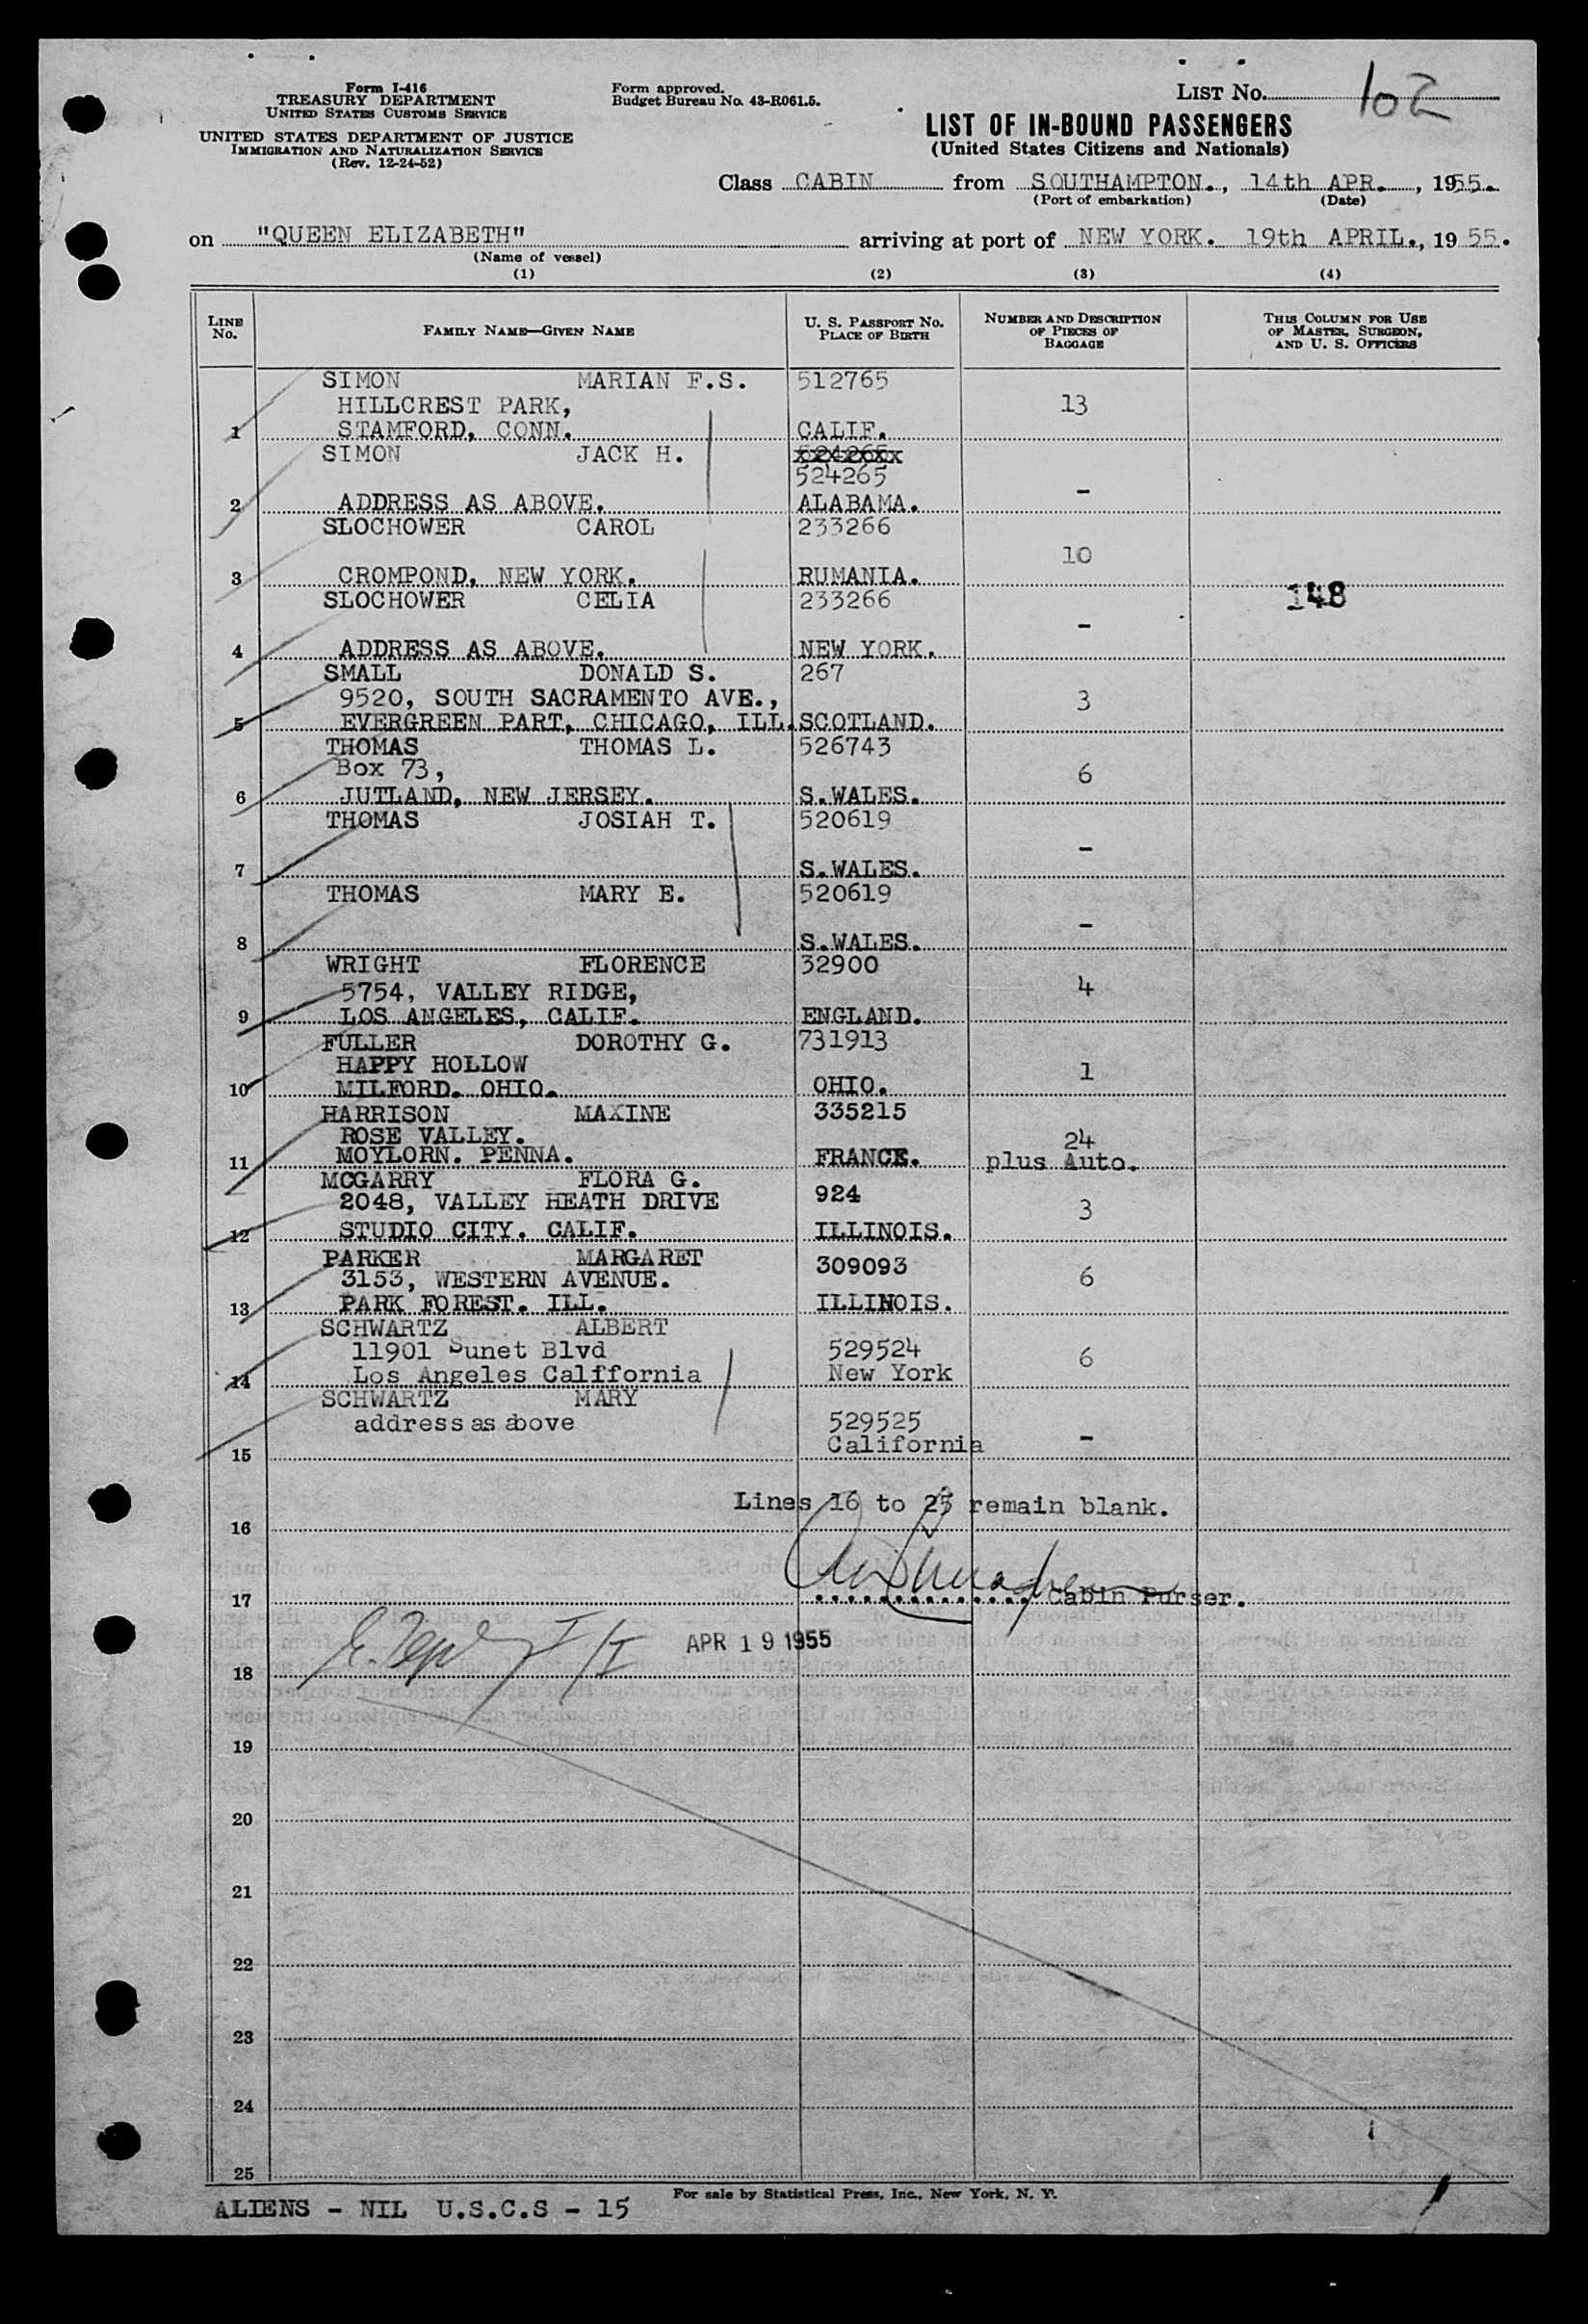 Form I-416
TREASURY DEPARTMENT
UNITED STATES CUSTOMS SERVICE
UNITED STATES DEPARTMENT OF JUSTICE
IMMIGRATION AND NATURALIZATION SERVICE
(Rev. 12-24-52)
Form approved.
Budget Bureau No. 43-R061.5.
LIST No. 102
LIST OF IN-BOUND PASSENGERS
(United States Citizens and Nationals)
Class CABIN from SOUTHAMPTON., 14th APR., 1955.
(Port of embarkation) (Date)
on "QUEEN ELIZABETH" arriving at port of NEW YORK. 19th APRIL., 1955.
(Name of vessel)
(1) (2) (3) (4)
LINE No. FAMILY NAME—GIVEN NAME U. S. PASSPORT No. PLACE OF BIRTH NUMBER AND DESCRIPTION OF PIECES OF BAGGAGE THIS COLUMN FOR USE OF MASTER, SURGEON, AND U. S. OFFICERS
SIMON MARIAN F.S. 512765
HILLCREST PARK, 13
1 STAMFORD, CONN. CALIF.
SIMON JACK H.
524265
2 ADDRESS AS ABOVE. ALABAMA. -
SLOCHOWER CAROL 233266
10
3 CROMPOND, NEW YORK. RUMANIA.
SLOCHOWER CELIA 233266 148
-
4 ADDRESS AS ABOVE. NEW YORK.
SMALL DONALD S. 267
9520, SOUTH SACRAMENTO AVE., 3
5 EVERGREEN PART, CHICAGO, ILL. SCOTLAND.
THOMAS THOMAS L. 526743
Box 73, 6
6 JUTLAND, NEW JERSEY. S.WALES.
THOMAS JOSIAH T. 520619
-
7 S.WALES.
THOMAS MARY E. 520619
-
8 S.WALES.
WRIGHT FLORENCE 32900
5754, VALLEY RIDGE, 4
9 LOS ANGELES, CALIF. ENGLAND.
FULLER DOROTHY G. 731913
HAPPY HOLLOW 1
10 MILFORD. OHIO. OHIO.
HARRISON MAXINE 335215
ROSE VALLEY. 24
11 MOYLORN. PENNA. FRANCE. plus Auto.
MCGARRY FLORA G. 924
2048, VALLEY HEATH DRIVE 3
12 STUDIO CITY. CALIF. ILLINOIS.
PARKER MARGARET 309093
3153, WESTERN AVENUE. 6
13 PARK FOREST. ILL. ILLINOIS.
SCHWARTZ ALBERT
11901 Sunet Blvd 529524 6
14 Los Angeles California New York
SCHWARTZ MARY
address as above 529525
15 California -
Lines 16 to 25 remain blank.
16
17 Cabin Purser.
APR 19 1955
18
19
20
21
22
23
24
25
For sale by Statistical Press, Inc., New York, N. Y.
ALIENS - NIL U.S.C.S - 15